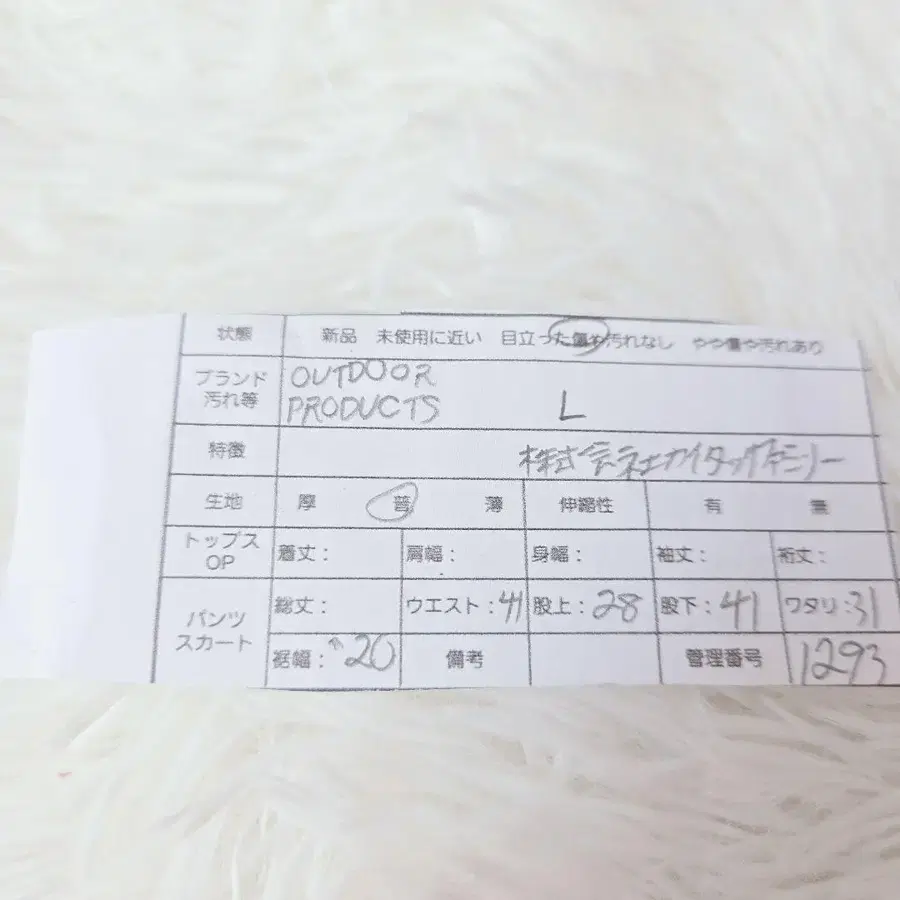 状態 新品 未使用に近い 目立った傷や汚れなし やや傷や汚れあり
ブランド OUTDOOR
汚れ等 PRODUCTS L
特徴 株式会社カイタックファミリー
生地 厚 普 薄 伸縮性 有 無
トップス
OP 着丈: 肩幅: 身幅: 袖丈: 裄丈:
パンツ
スカート
総丈: ウエスト:41 股上:28 股下:41 ワタリ:31
裾幅:↑20 備考 管理番号 1293